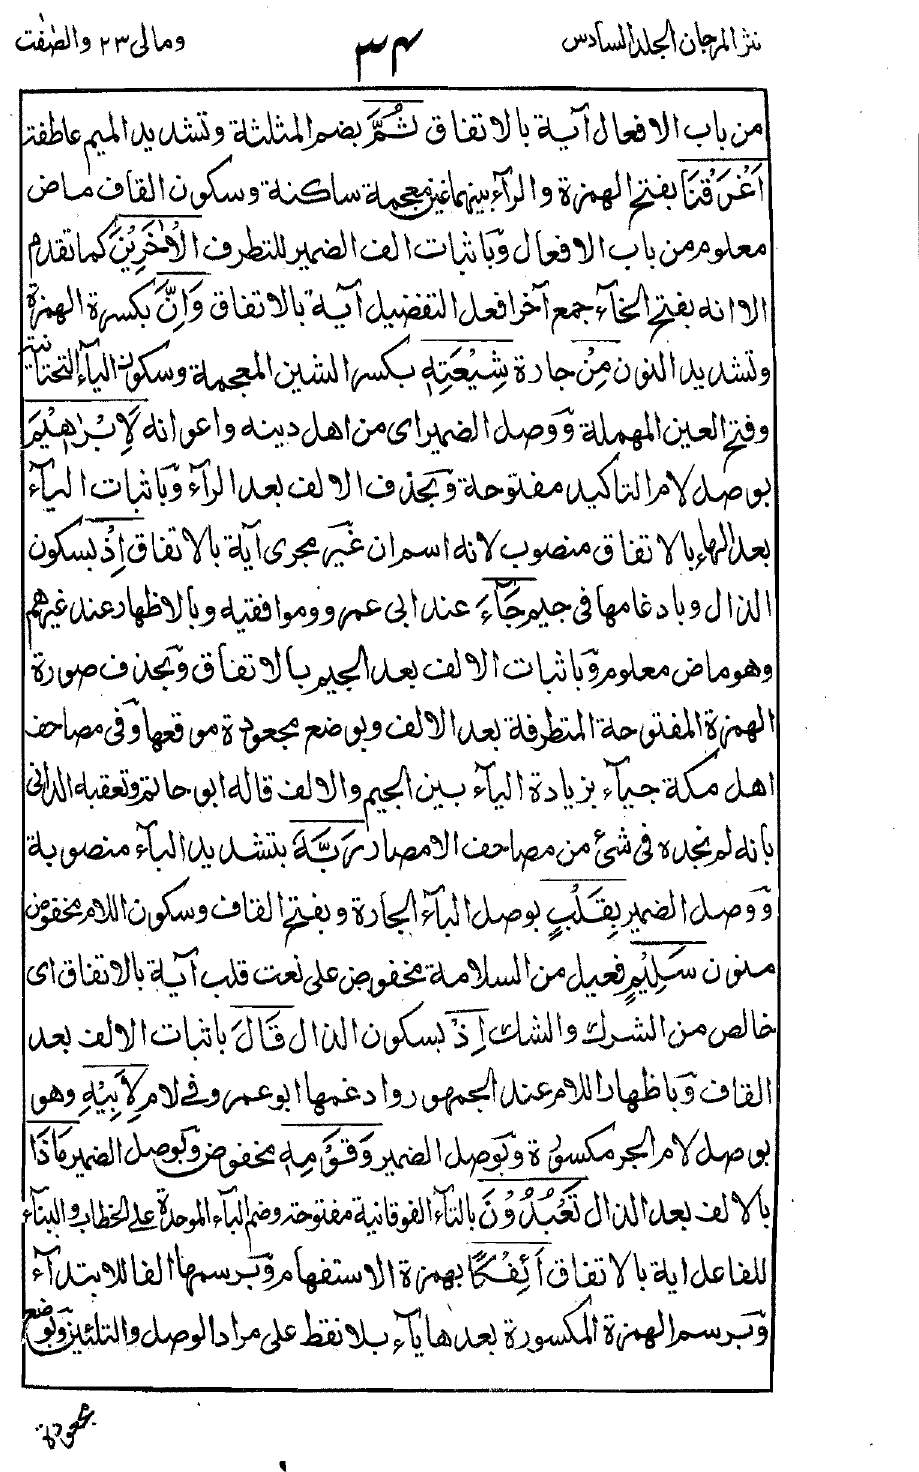 نثر المرجان الجلد السادس
٣٤
ومالی ٢٣ والصٰفٰت
من باب الافعال آیة بالاتفاق ثُمَّ بضم المثلثة وتشدید المیم عاطفة
اَغْرَقْنَا بفتح الهمزة والرآء بینهما غین معجمة ساکنة وسکون القاف ماض
معلوم من باب الافعال وّباثبات الف الضمیر للتطرف الْاٰخَرِیْنَ کما تقدم
الا انه بفتح الخآء جمع آخر افعل التفضیل آیة بالاتفاق وَاِنَّ بکسرة الهمزة
وتشدید النون مِنْ جارة شِیْعَتِهٖ بکسر الشین المعجمة وسکون الیآء التحتانیة
وفتح العین المهملة وّوصل الضمیر ای من اهل دینه واعوانه لَاِبْرٰهِیْمَ
بوصل لام التاکید مفتوحة وّبحذف الالف بعد الرآء وّباثبات الیآء
بعد الهاء بالاتفاق منصوب لانه اسم ان غیر مجری آیة بالاتفاق اِذْ بسکون
الذال وبادغامها فی جیم جَآءَ عند ابی عمرو وموافقیه وبالاظهار عند غیرهم
وهو ماض معلوم وّباثبات الالف بعد الجیم بالاتفاق وّبحذف صورة
الهمزة المفتوحة المتطرفة بعد الالف وبوضع مجعودة موقعها وّفی مصاحف
اهل مکة جیآء بزیادة الیآء بین الجیم والالف قاله ابو حاتم وتعقبه الدانی
بانه لم نجده فی شئ من مصاحف الامصار رَبَّهٗ بتشدید البآء منصوبة
وّوصل الضمیر بِقَلْبٍ بوصل البآء الجارة وبفتح القاف وسکون اللام مخفوض
منون سَلِیْمٍ فعیل من السلامة مخفوض علی نعت قلب آیة بالاتفاق ای
خالص من الشرك والشك اِذْ بسکون الذال قَالَ باثبات الالف بعد
القاف وّباظهار اللام عند الجمهور وادغمها ابو عمرو فی لام لِاَبِیْهِ وهو
بوصل لام الجر مکسورة وّبوصل الضمیر وَقَوْمِهٖ مخفوض وّبوصل الضمیر مَاذَا
بالالف بعد الذال تَعْبُدُوْنَ بالتآء الفوقانیة مفتوحة وضم البآء الموحدة علی الخطاب والبنآء
للفاعل ایة بالاتفاق اَئِفْكًا بهمزة الاستفهام وّبرسمها الفا للابتدآء
وّبرسم الهمزة المکسورة بعدها یآء بلا نقط علی مراد الوصل والتلیین وّبوضع
مجعودة